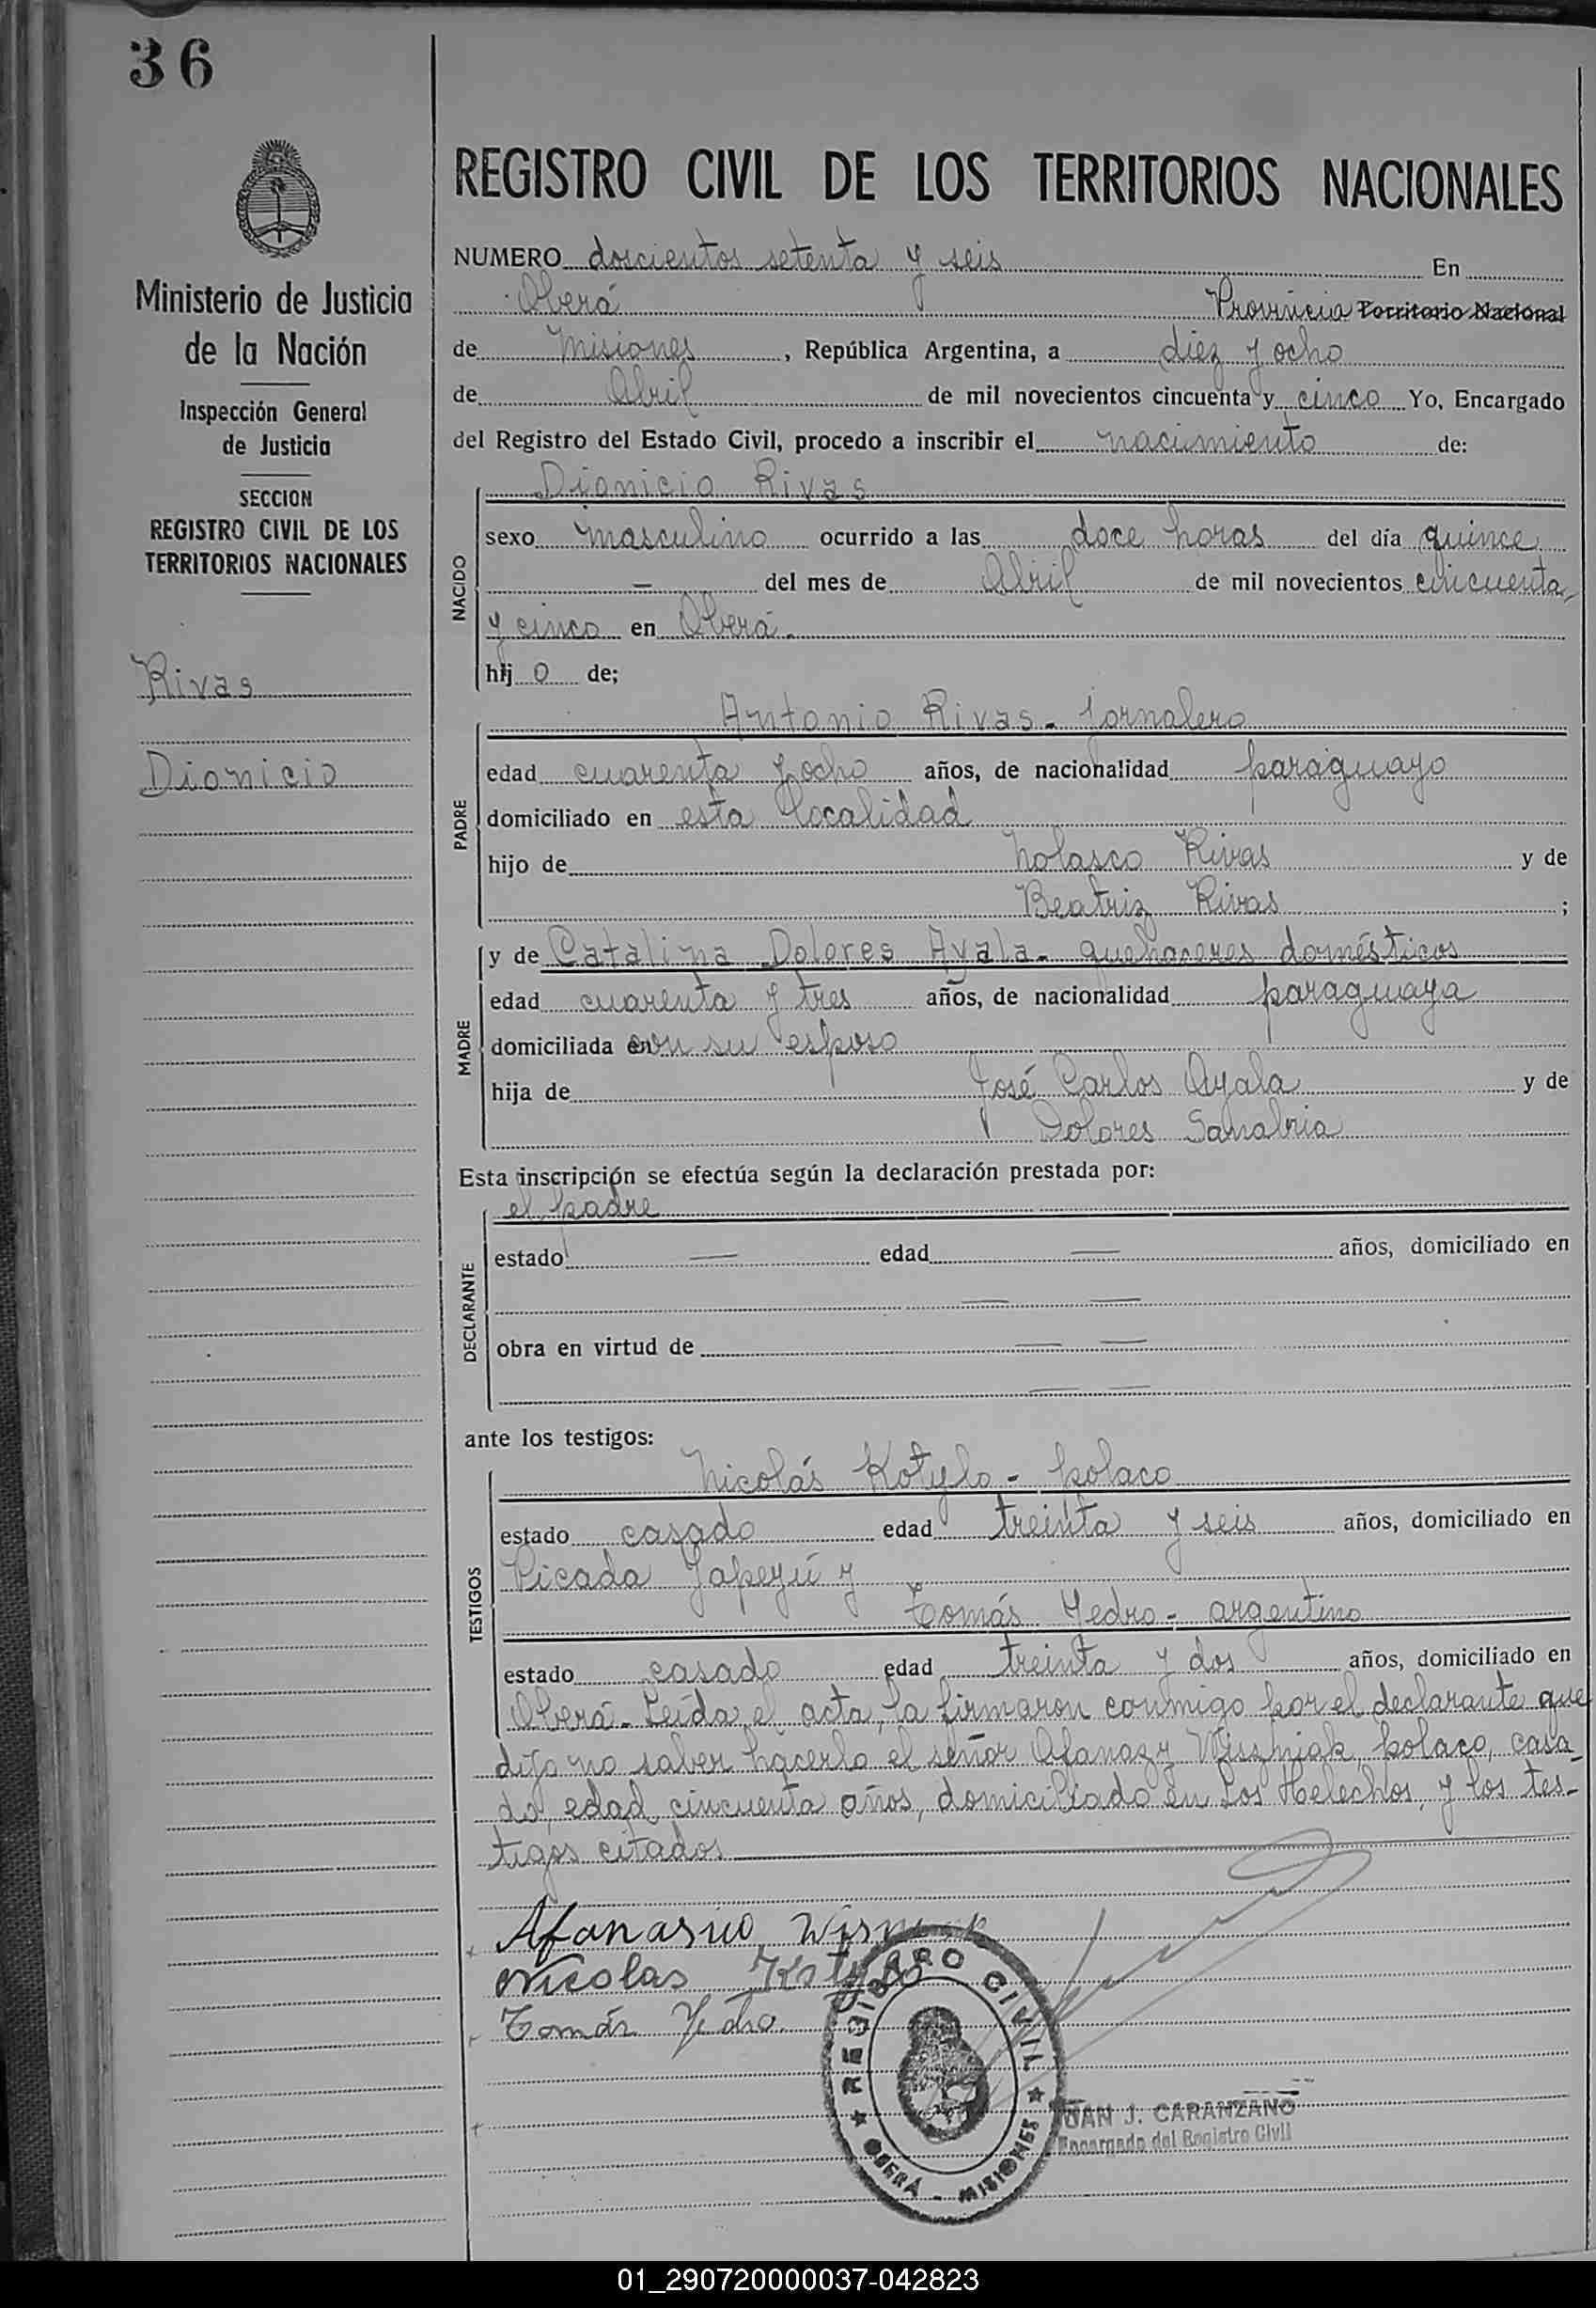 36
Ministerio de Justicia
de la Nación
Inspección General
de Justicia
SECCION
REGISTRO CIVIL DE LOS
TERRITORIOS NACIONALES
Rivas
Dionicio
REGISTRO CIVIL DE LOS TERRITORIOS NACIONALES
NUMERO doscientos setenta y seis En
Oberá Provincia Territorio Nacional
de Misiones, República Argentina, a diez y ocho
de Abril de mil novecientos cincuenta y cinco Yo, Encargado
del Registro del Estado Civil, procedo a inscribir el nacimiento de:
Dionicio Rivas
NACIDO
sexo masculino ocurrido a las doce horas del día quince
— del mes de Abril de mil novecientos cincuenta
y cinco en Oberá.
hij o de;
PADRE
Antonio Rivas - jornalero
edad cuarenta y ocho años, de nacionalidad paraguayo
domiciliado en esta localidad
hijo de Nolasco Rivas y de
Beatriz Rivas ;
MADRE
y de Catalina Dolores Ayala - quehaceres domésticos
edad cuarenta y tres años, de nacionalidad paraguaya
domiciliada con su esposo
hija de José Carlos Ayala y de
Dolores Sanabria
Esta inscripción se efectúa según la declaración prestada por:
DECLARANTE
el padre
estado — edad — años, domiciliado en
— —
obra en virtud de — —
— —
ante los testigos:
TESTIGOS
Nicolás Kotylo - polaco
estado casado edad treinta y seis años, domiciliado en
Picada Yapeyú y
Tomás Yedro - argentino
estado casado edad treinta y dos años, domiciliado en
Oberá - Leída el acta, la firmaron conmigo por el declarante que
dijo no saber hacerlo el señor Afanazy Wiszniak, polaco, casa-
do, edad cincuenta años, domiciliado en Los Helechos, y los tes-
tigos citados
Afanasio
Nicolas Kotylo
Tomás Yedro.
REGISTRO CIVIL
OBERÁ - MISIONES
JUAN J. CARANZANO
Encargado del Registro Civil
01_290720000037-042823